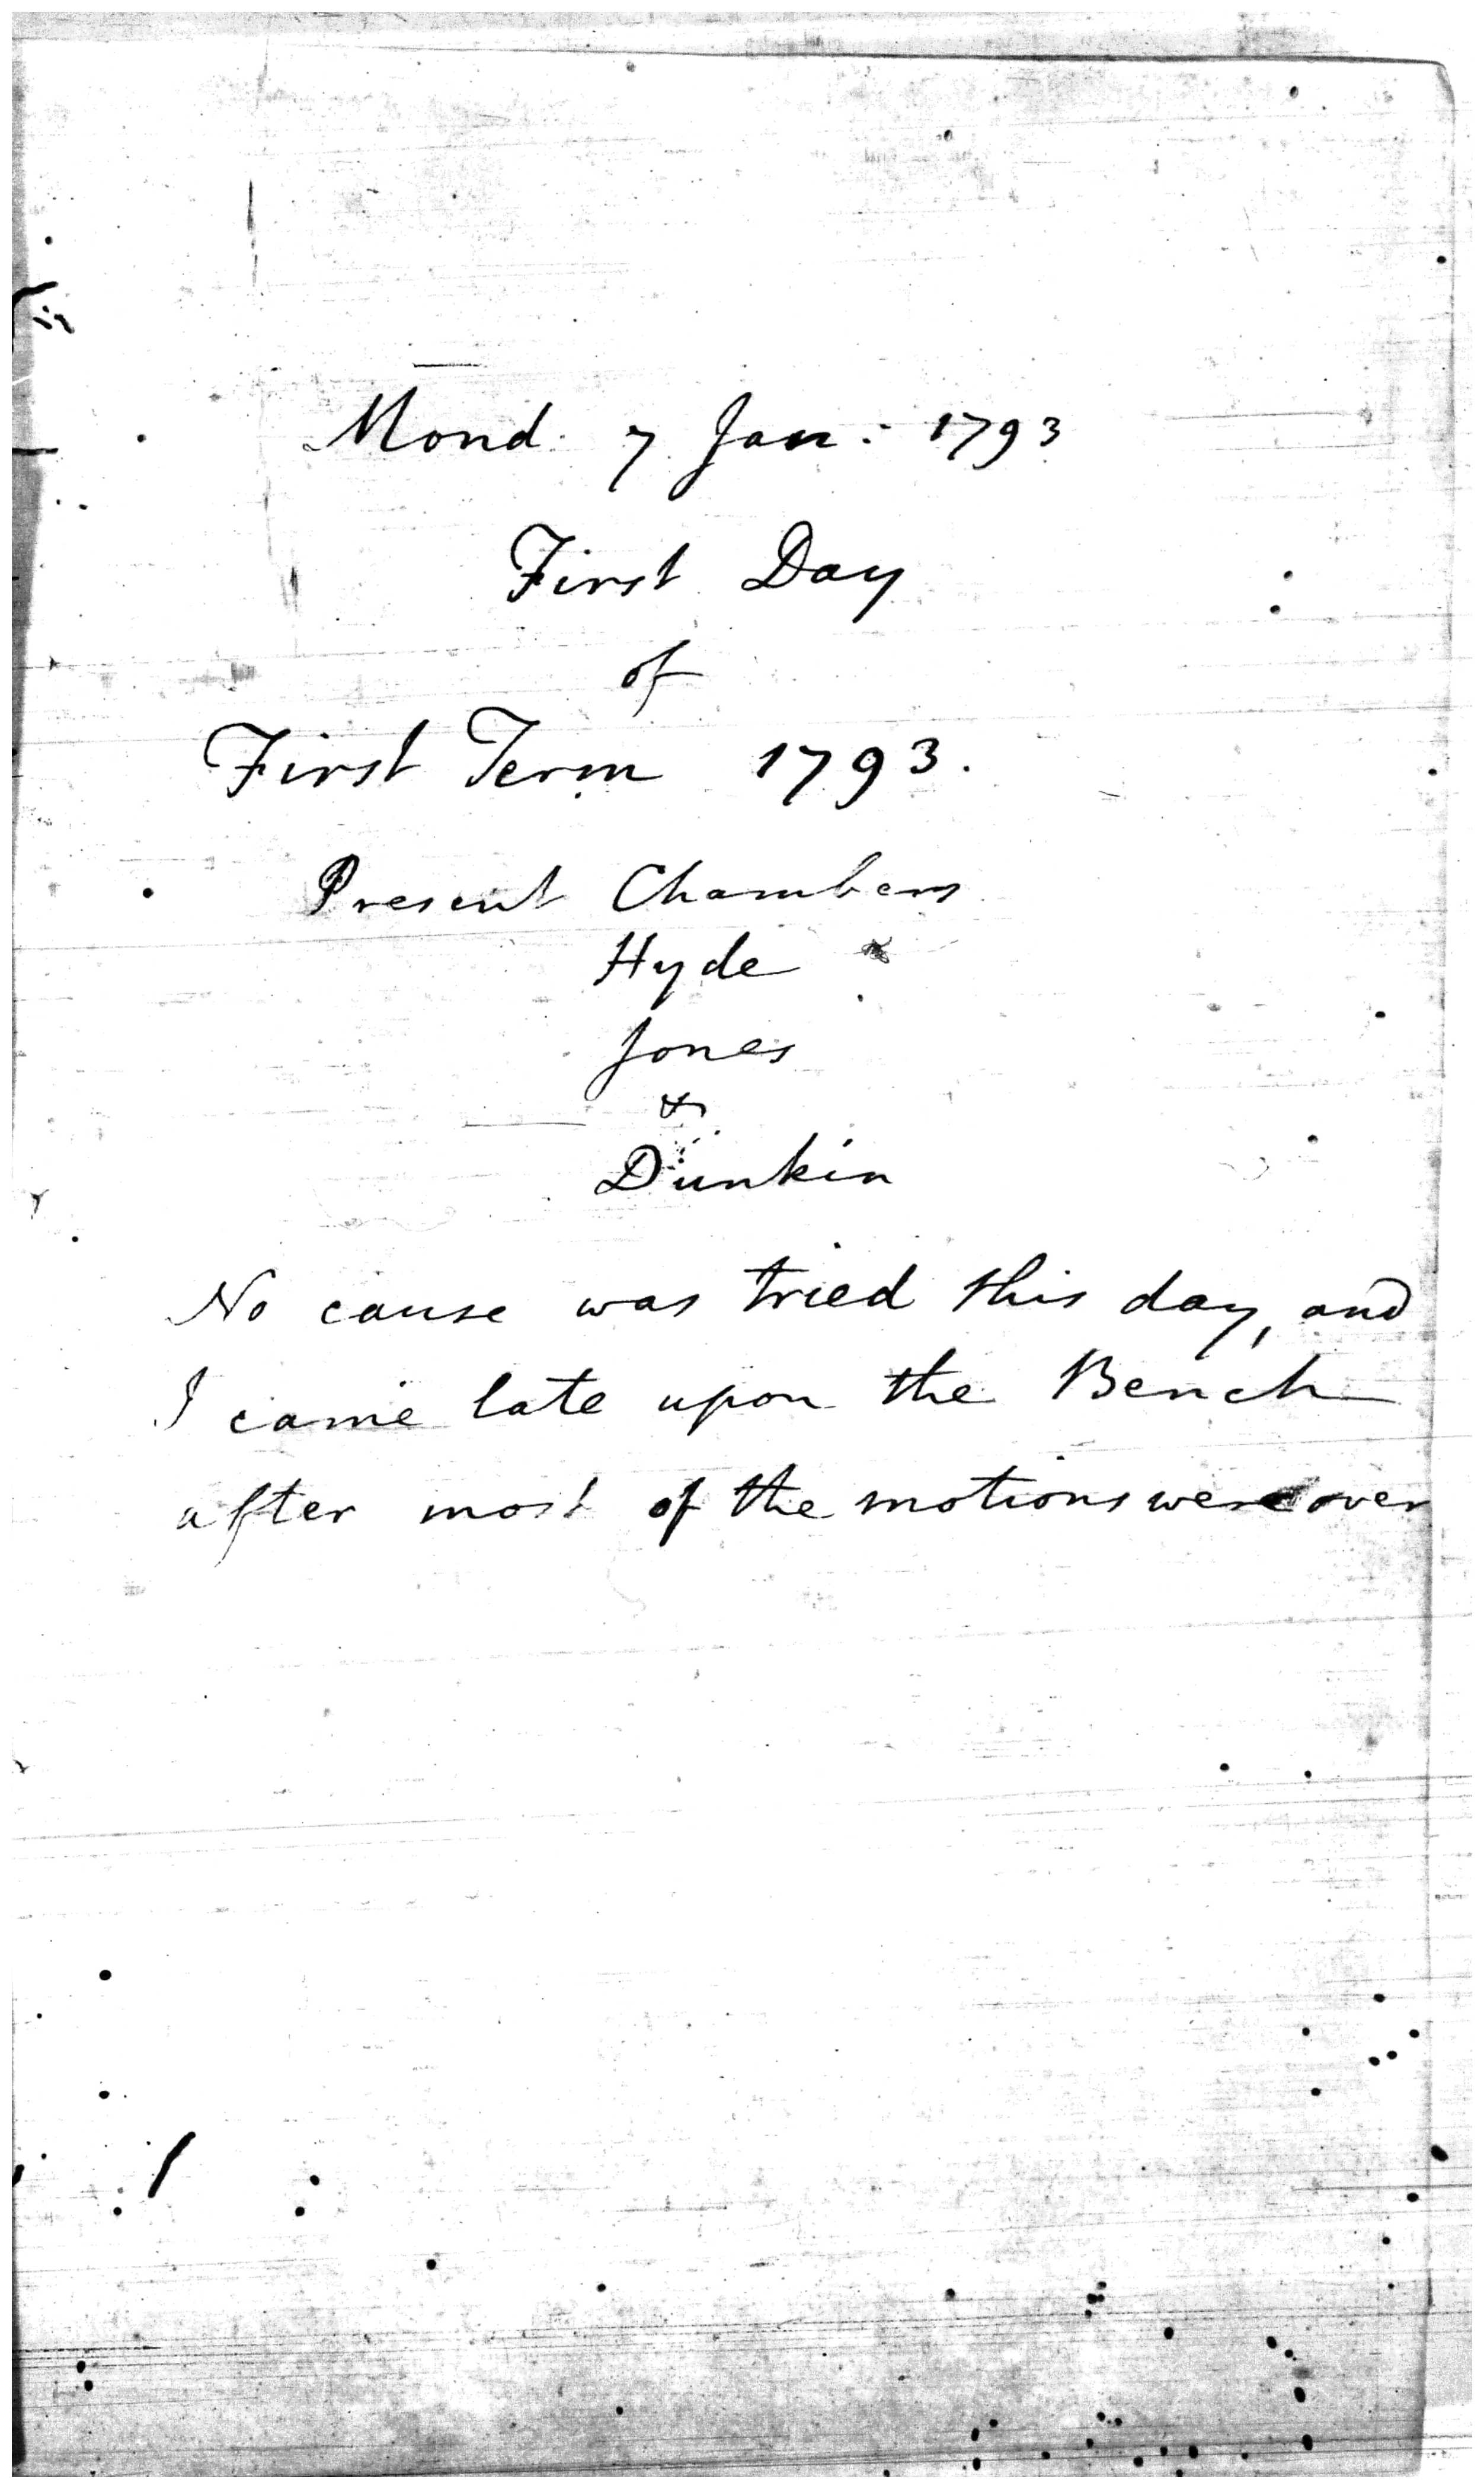 Mond. 7. Jan: 1793
First Day
of
First Term 1793.
Present Chambers
Hyde
Jones
&
Dunkin
No cause was tried this day, and
I came late upon the Bench
after most of the motions were over